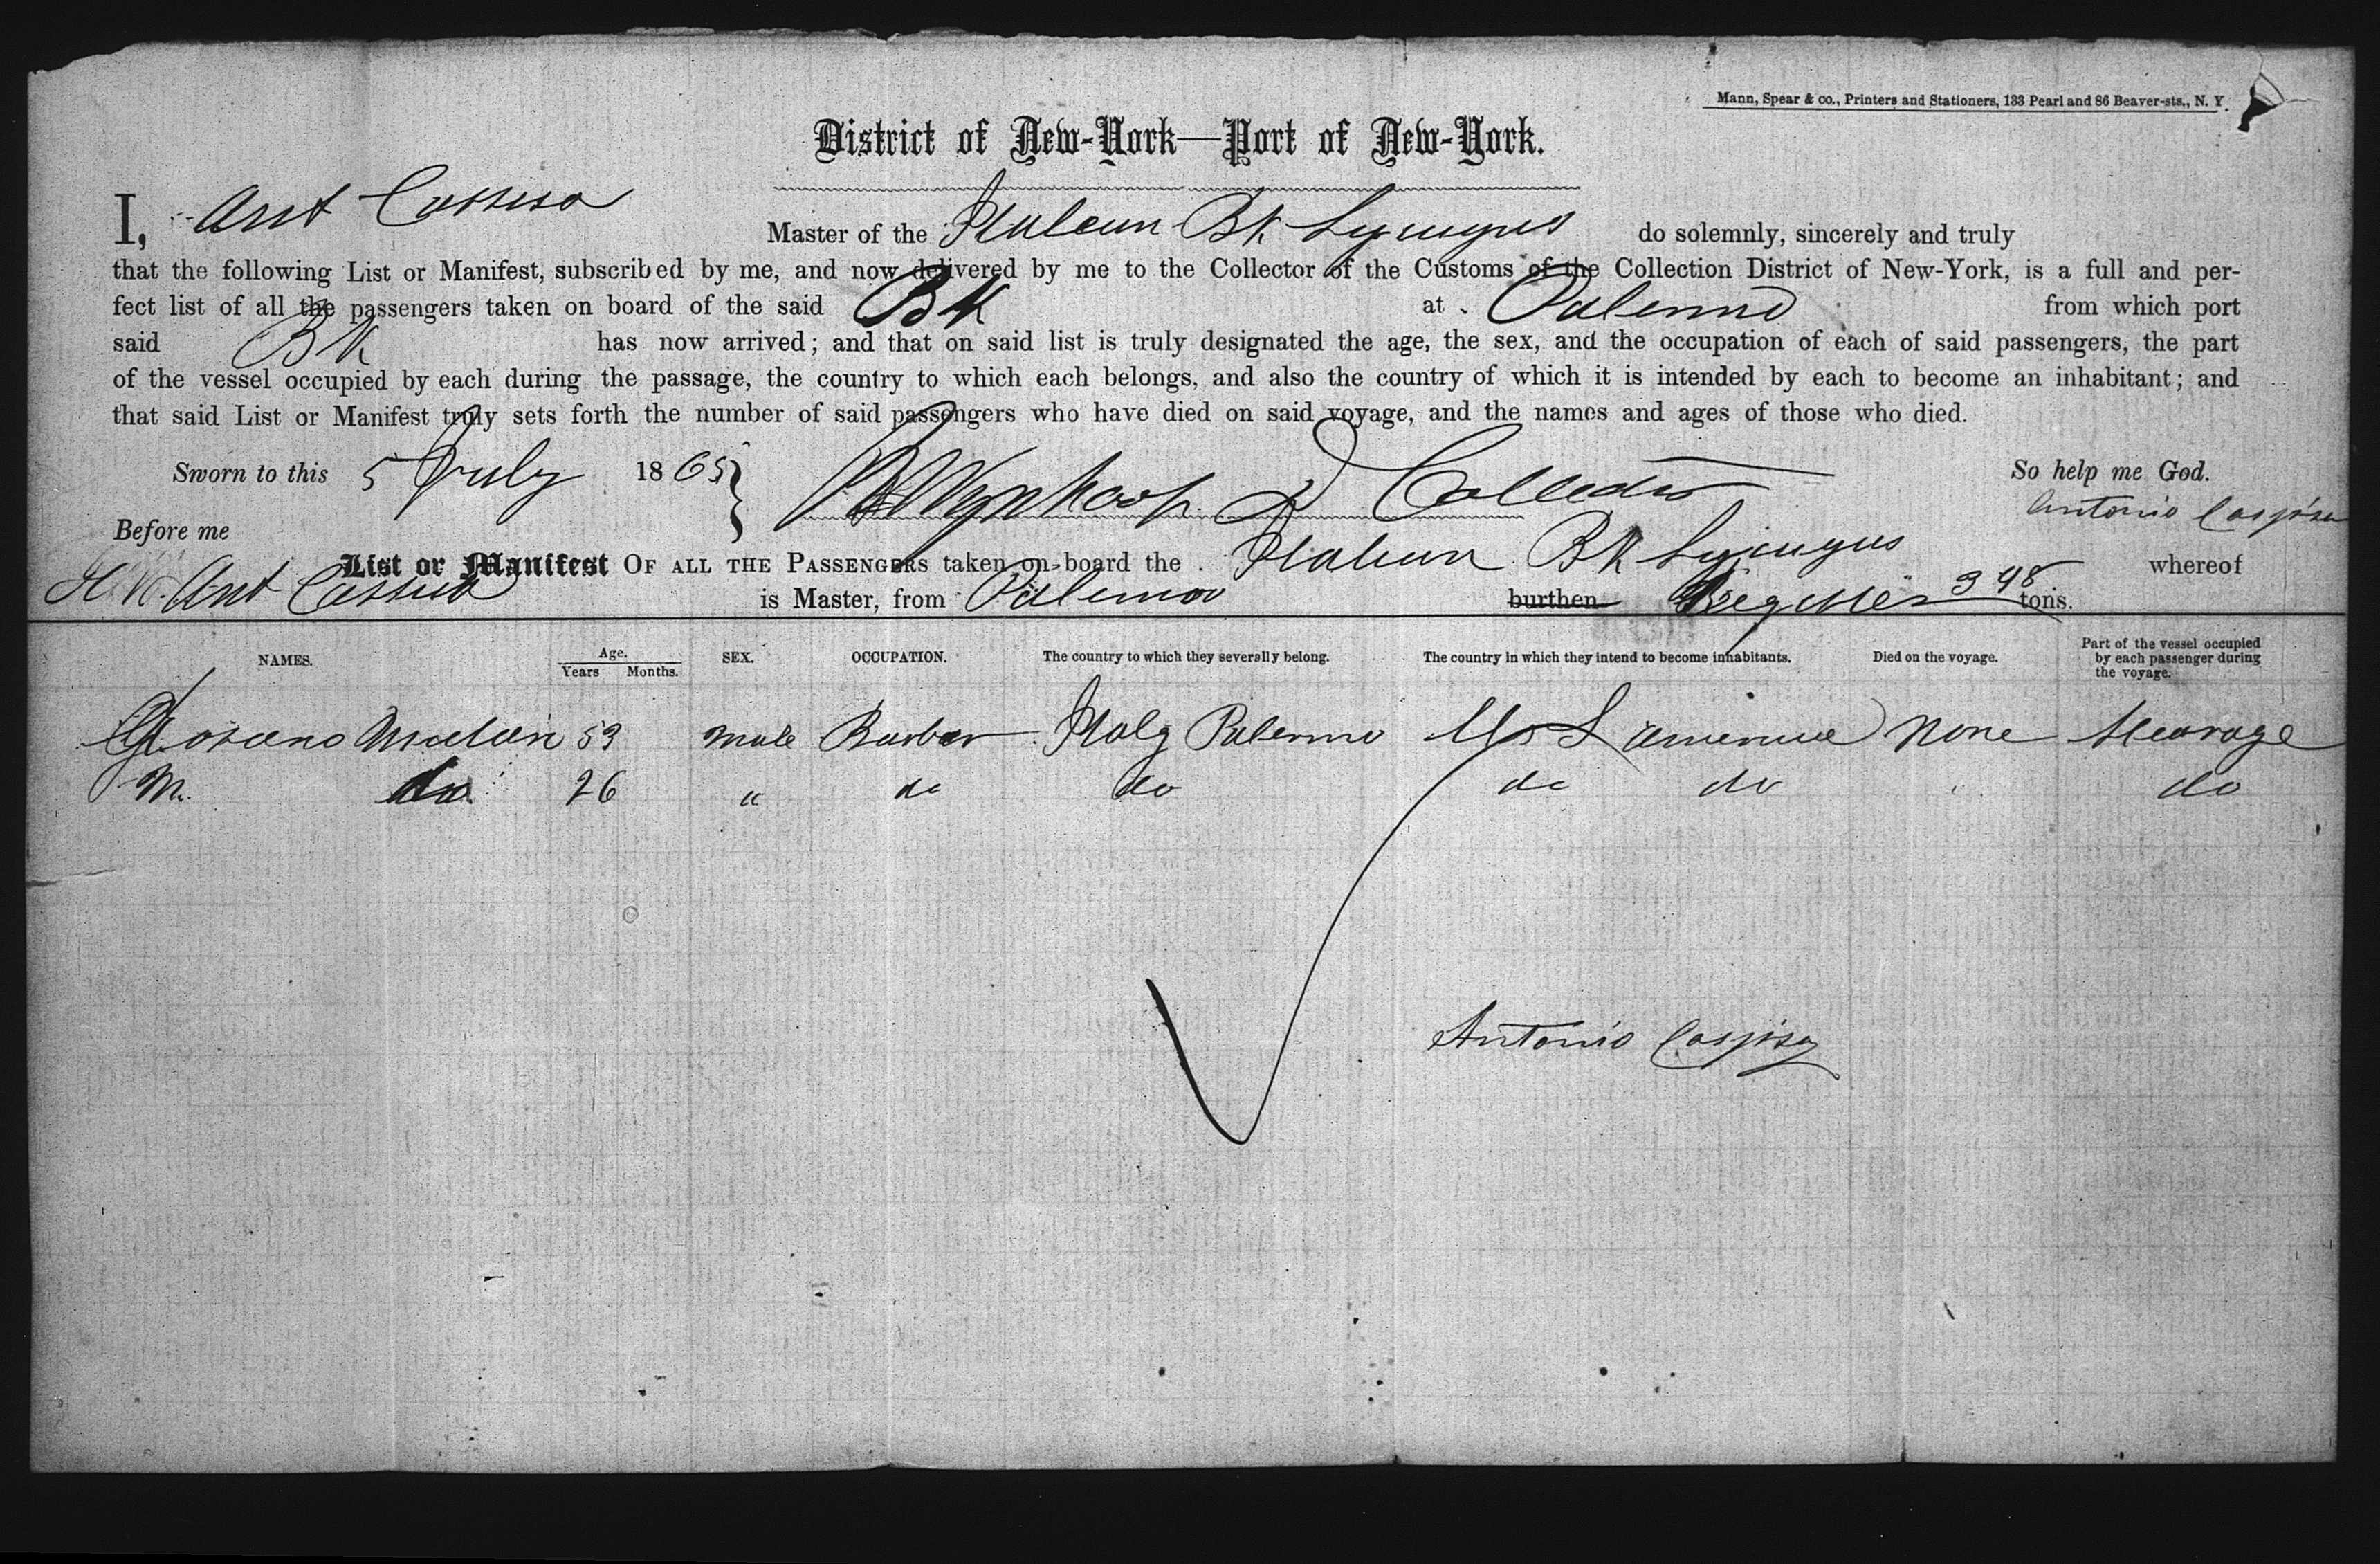 Mann, Spear & co., Printers and Stationers, 133 Pearl and 86 Beaver-sts., N. Y.
District of New-York—Port of New-York.
I, Ant Master of the Italian Bk do solemnly, sincerely and truly
that the following List or Manifest, subscribed by me, and now delivered by me to the Collector of the Customs of the Collection District of New-York, is a full and per-
fect list of all the passengers taken on board of the said Bk at Palermo from which port
said Bk has now arrived; and that on said list is truly designated the age, the sex, and the occupation of each of said passengers, the part
of the vessel occupied by each during the passage, the country to which each belongs, and also the country of which it is intended by each to become an inhabitant; and
that said List or Manifest truly sets forth the number of said passengers who have died on said voyage, and the names and ages of those who died.
Sworn to this 5 July 1865 D Collector So help me God.
Before me Antonio
List or Manifest OF ALL THE PASSENGERS taken on board the Italian Bk whereof
Ant is Master, from Palermo burthen Register 348 tons.
NAMES. Age. Years Months. SEX. OCCUPATION. The country to which they severally belong. The country in which they intend to become inhabitants. Died on the voyage. Part of the vessel occupied by each passenger during the voyage.
53 Male Barber Italy Palermo U S America None Steerage
M. do 26 " do do do do do
Antonio